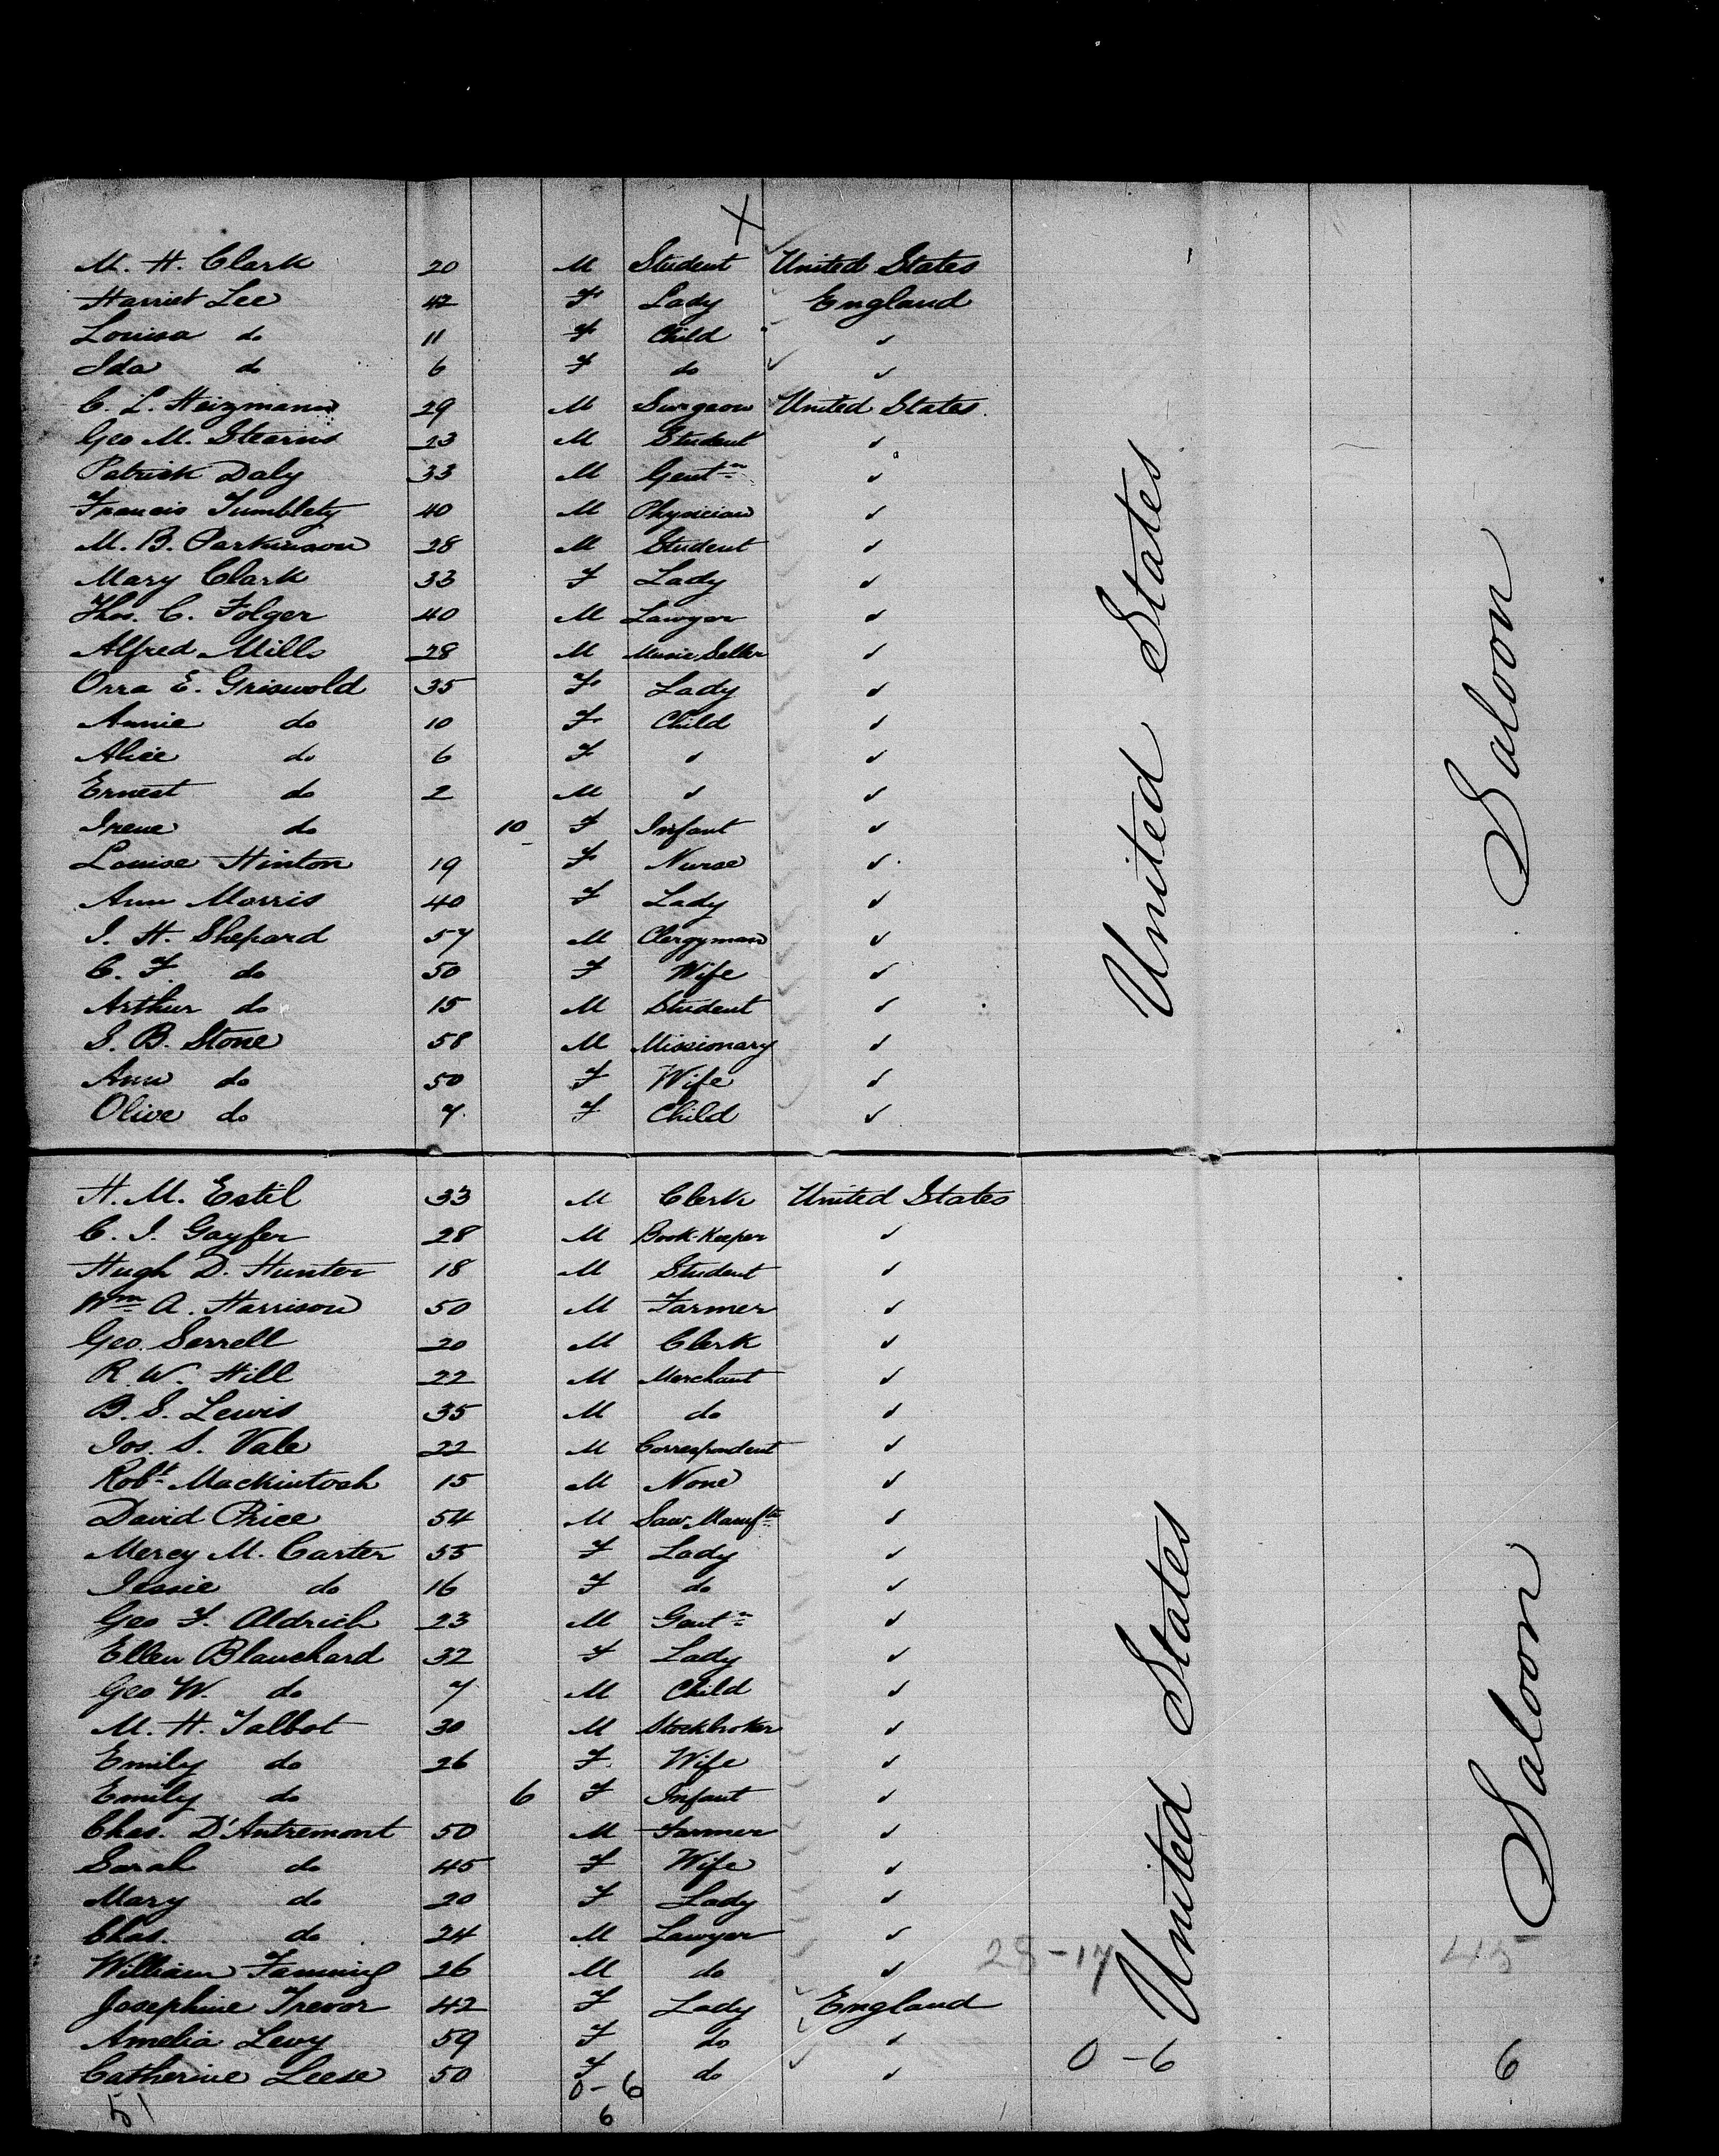 X
M. H. Clark 20 M Student United States
Harriet Lee 42 F Lady England
Louisa do 11 F Child ✓
Ida do 6 F do ✓
C. L. Heizmann 29 M Surgeon United States.
Geo M. Stearns 23 M Student ✓
Patrick Daly 33 M Gentn ✓
Francis Tumblety 40 M Physician ✓
M. B. Parkinson 28 M Student ✓
Mary Clark 33 F Lady ✓
Thos. C. Folger 40 M Lawyer ✓
Alfred Mills 28 M Music Seller ✓
Orra E. Griswold 35 F Lady ✓
Annie do 10 F Child ✓
Alice do 6 F ✓ ✓
Ernest do 2 M ✓ ✓
Irene do 10 F Infant ✓
Louise Hinton 19 F Nurse ✓
Ann Morris 40 F Lady ✓
I. H. Shepard 57 M Clergyman ✓
C. F. do 50 F Wife ✓
Arthur do 15 M Student ✓
S. B. Stone 58 M Missionary ✓
Ann do 50 F Wife ✓
Olive do 7 F Child ✓
United States
Saloon
H. M. Estil 33 M Clerk United States
C. I. Gayfer 28 M Book-Keeper ✓
Hugh D. Hunter 18 M Student ✓
Wm A. Harrison 50 M Farmer ✓
Geo. Serrell 20 M Clerk ✓
R. W. Hill 22 M Merchant ✓
B. S. Lewis 35 M do ✓
Jos. S. Vale 22 M Correspondent ✓
Robt Mackintosh 15 M None ✓
David Price 54 M Saw Manuftr ✓
Mercy M. Carter 55 F Lady ✓
Jessie do 16 F do ✓
Geo F. Aldrich 23 M Gentn ✓
Ellen Blanchard 32 F Lady ✓
Geo W. do 7 M Child ✓
M. H. Talbot 30 M Stockbroker ✓
Emily do 26 F Wife ✓
Emily do 6 F Infant ✓
Chas. D'Antremont 50 M Farmer ✓
Sarah do 45 F Wife ✓
Mary do 20 F Lady ✓
Chas. do 24 M Lawyer ✓
William Fanning 26 M do ✓ 28-17 45
Josephine Trevor 42 F Lady England
Amelia Levy 59 F do ✓
Catherine Leese 50 F do ✓ 0-6 6
51 0-6
6
United States
Saloon